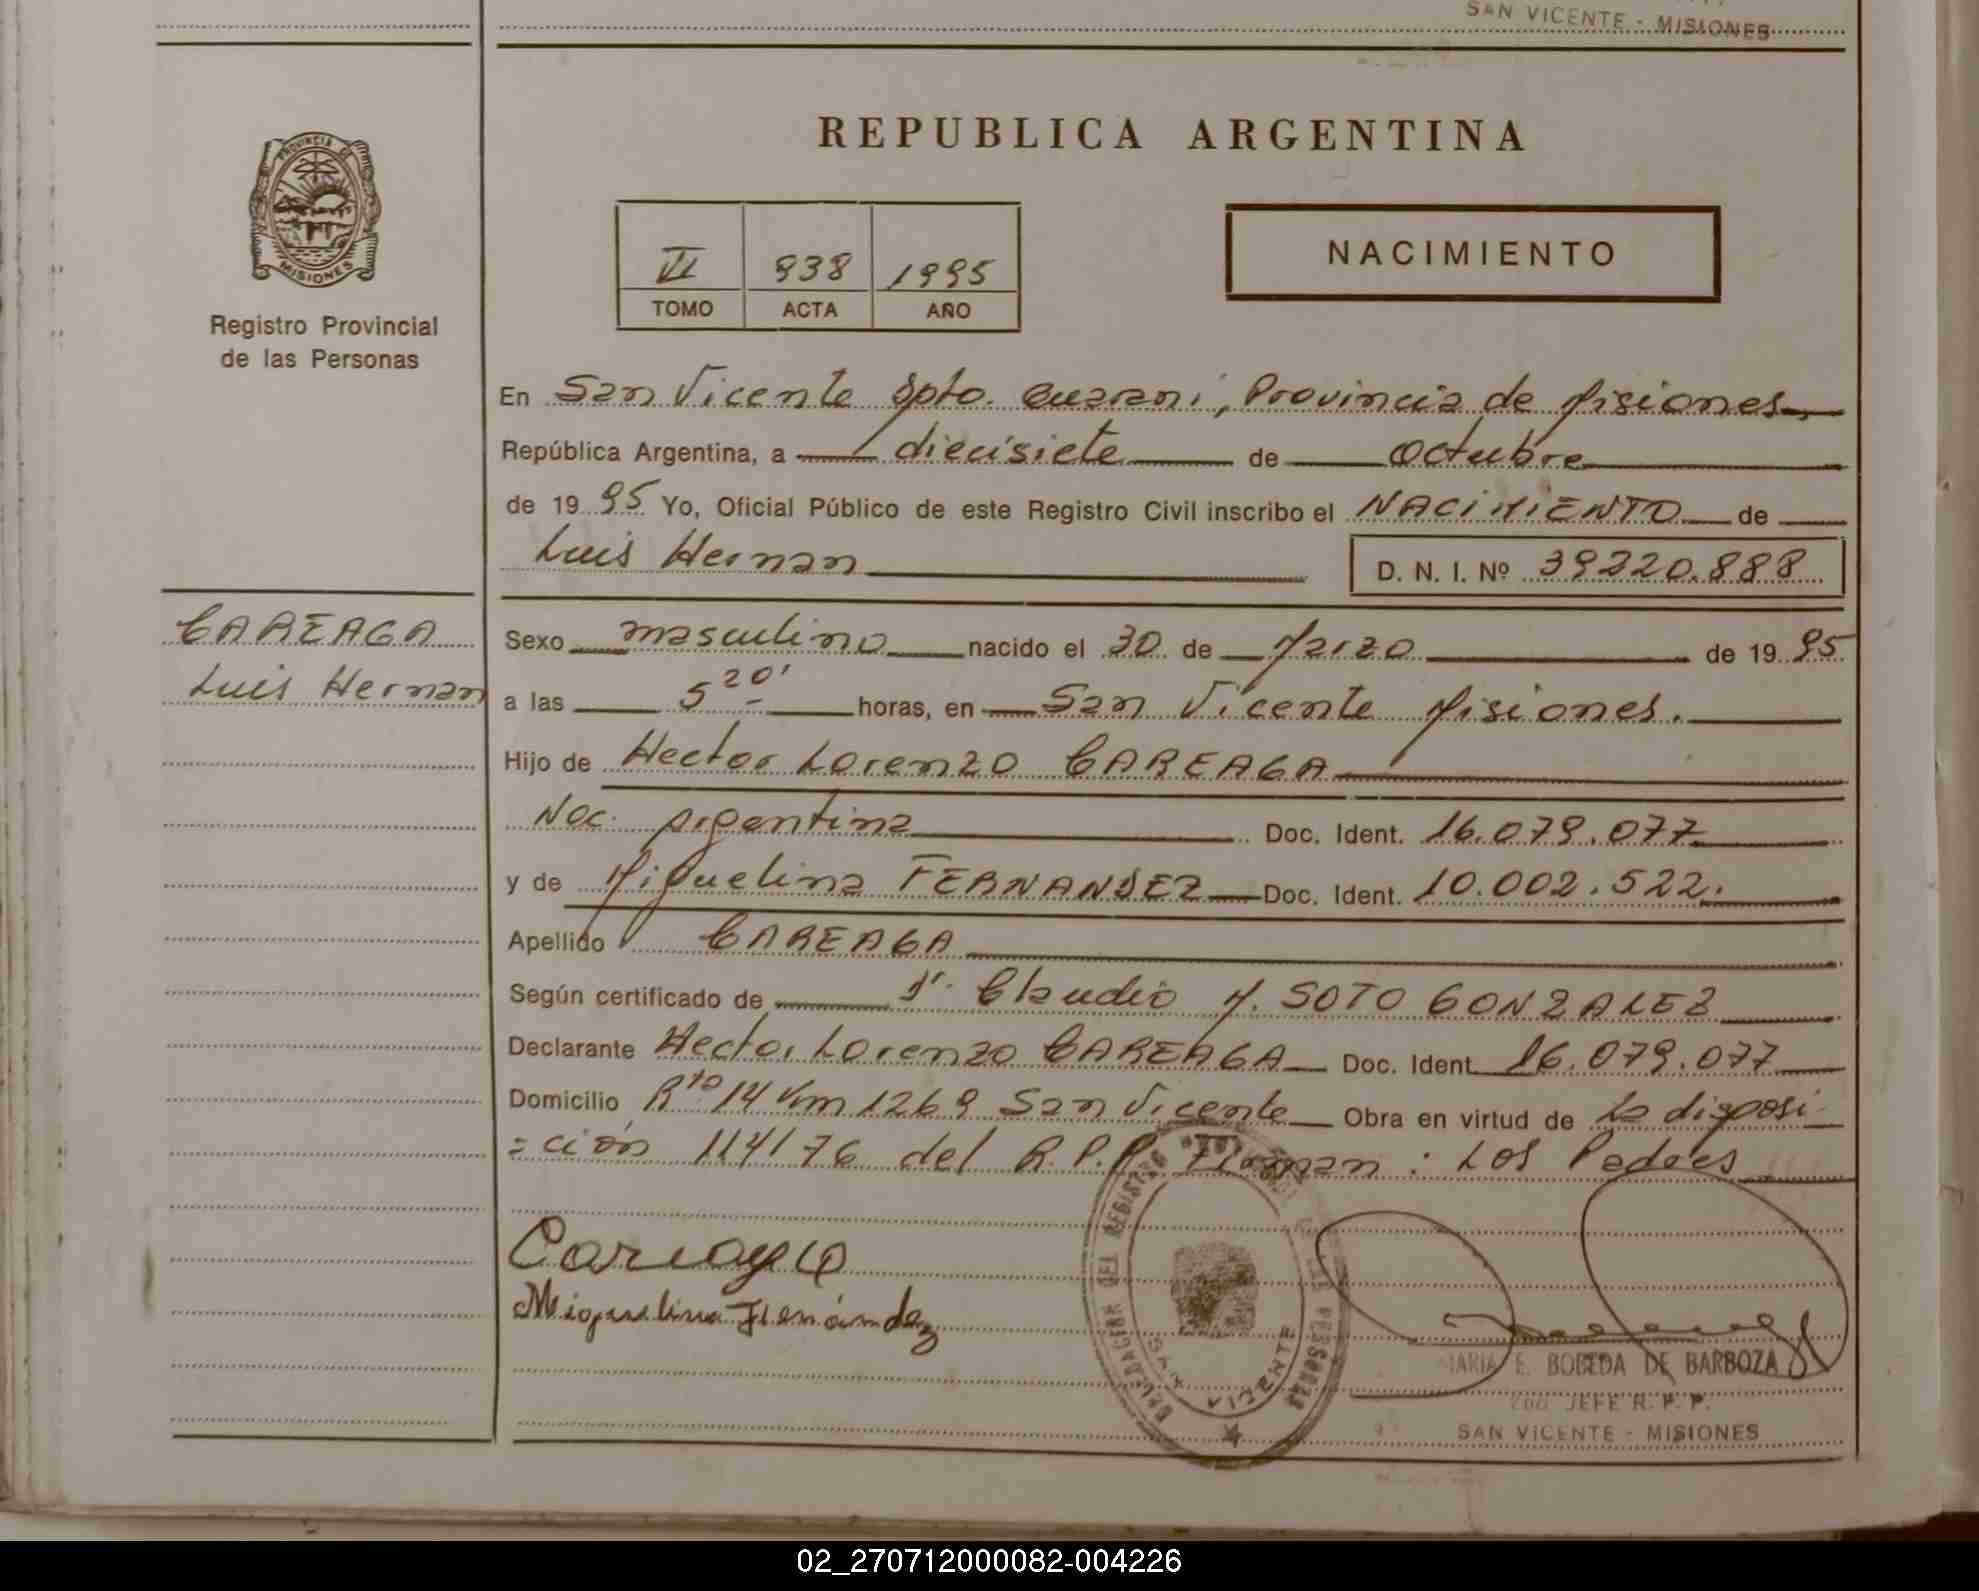 SAN VICENTE - MISIONES
PROVINCIA DE
MISIONES
Registro Provincial
de las Personas
CAREAGA
Luis Hernan
REPUBLICA ARGENTINA
VI 938 1995
TOMO ACTA AÑO
NACIMIENTO
En San Vicente Dpto. Guarani, Provincia de Misiones
República Argentina, a diecisiete de Octubre
de 19 95 Yo, Oficial Público de este Registro Civil inscribo el NACIMIENTO de
Luis Hernan D. N. I. Nº 39220.888
Sexo masculino nacido el 30 de Marzo de 19 95
a las 5 20' horas, en San Vicente Misiones.
Hijo de Hector Lorenzo CAREAGA
Nac. Argentina Doc. Ident. 16.079.077
y de Miguelina FERNANDEZ Doc. Ident. 10.002.522.
Apellido CAREAGA
Según certificado de Dr. Claudio M. SOTO GONZALEZ
Declarante Hector Lorenzo CAREAGA Doc. Ident 16.079.077
Domicilio Rta 14 Km 1269 San Vicente Obra en virtud de la disposi-
=ción 114/76 del R.P.P. Firman: Los Padres
Careaga
Miguelina Fernández
DELEGACION DEL REGISTRO DE LAS PERSONAS
SAN VICENTE
MARIA E. BOBEDA DE BARBOZA
2do JEFE R. P. P.
SAN VICENTE - MISIONES
02_270712000082-004226